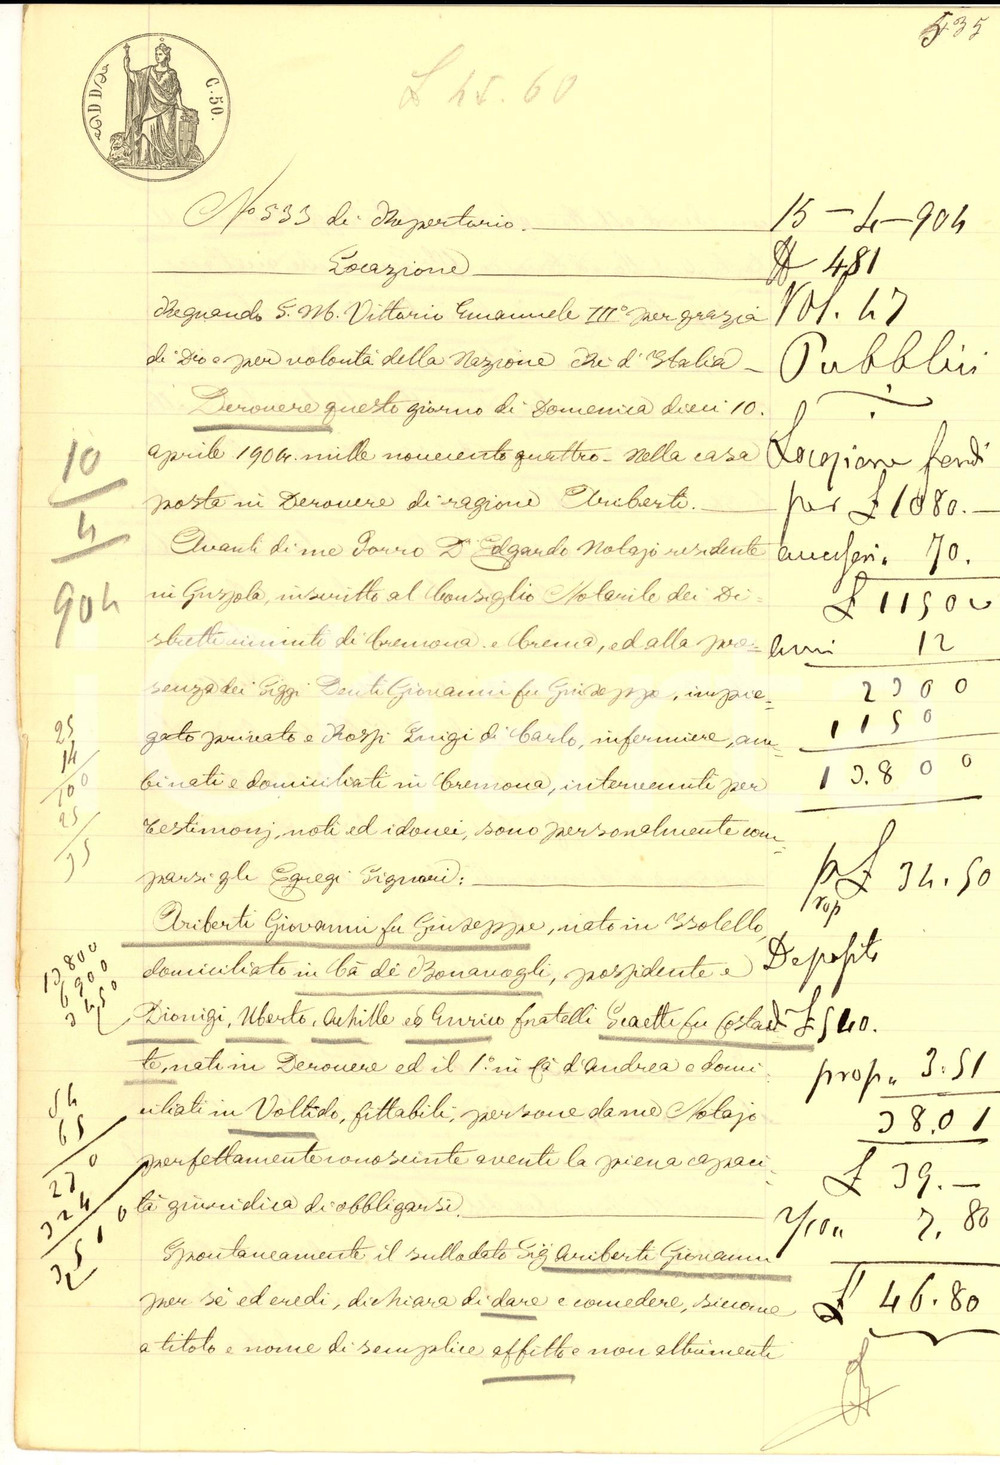 535
C. 50.
£ 45.60
No 533 di Repertorio.
Locazione
Regnando S. M. Vittorio Emanuele III° per grazia
di Dio e per volontà della Nazione Re d'Italia
Derovere questo giorno di Domenica dieci 10.
aprile 1904. mille novecento quattro. Nella casa
posta in Derovere di ragione Ariberti.
Avanti di me Porro Dr Edgardo Notajo residente
in Gussola, inscritto al Consiglio Notarile dei Di=
stretti riuniti di Cremona e Crema, ed alla pre=
senza dei Siggi Denti Giovanni fu Giuseppe, impie=
gato privato e Rossi Luigi di Carlo, infermiere, am=
binati e domiciliati in Cremona, intervenuti per
testimonj, noti ed idonei, sono personalmente com=
parsi gli Egregi Signori:
Ariberti Giovanni fu Giuseppe, nato in Isolello,
domiciliato in Cà de' Bonavogli, possidente e
Dionigi, Uberto, Achille ed Enrico fratelli Scaetti fu Costan=
te, nati in Derovere ed il 1° in Cà d'Andrea e domi=
ciliati in Voltido, fittabili, persone da me Notajo
perfettamente conosciute aventi la piena capaci=
tà giuridica di obbligarsi.
Spontaneamente il sullodato Sig. Ariberti Giovanni
per sè ed eredi, dichiara di dare e concedere, siccome
a titolo e nome di semplice affitto e non altrimenti
15-4-904
N 481
Vol. 47
Pubblici
Locazione fondi
per £ 1080.—
70.
£ 1150
anni 12
2300
1150
13.800
prop £ 34.50
Deposito
£ 540.
prop. 3.51
38.01
£ 39.—
7.80
£ 46.80
10
4
904
25
14
100
25
35
13800
6900
3450
54
65
270
324
3510